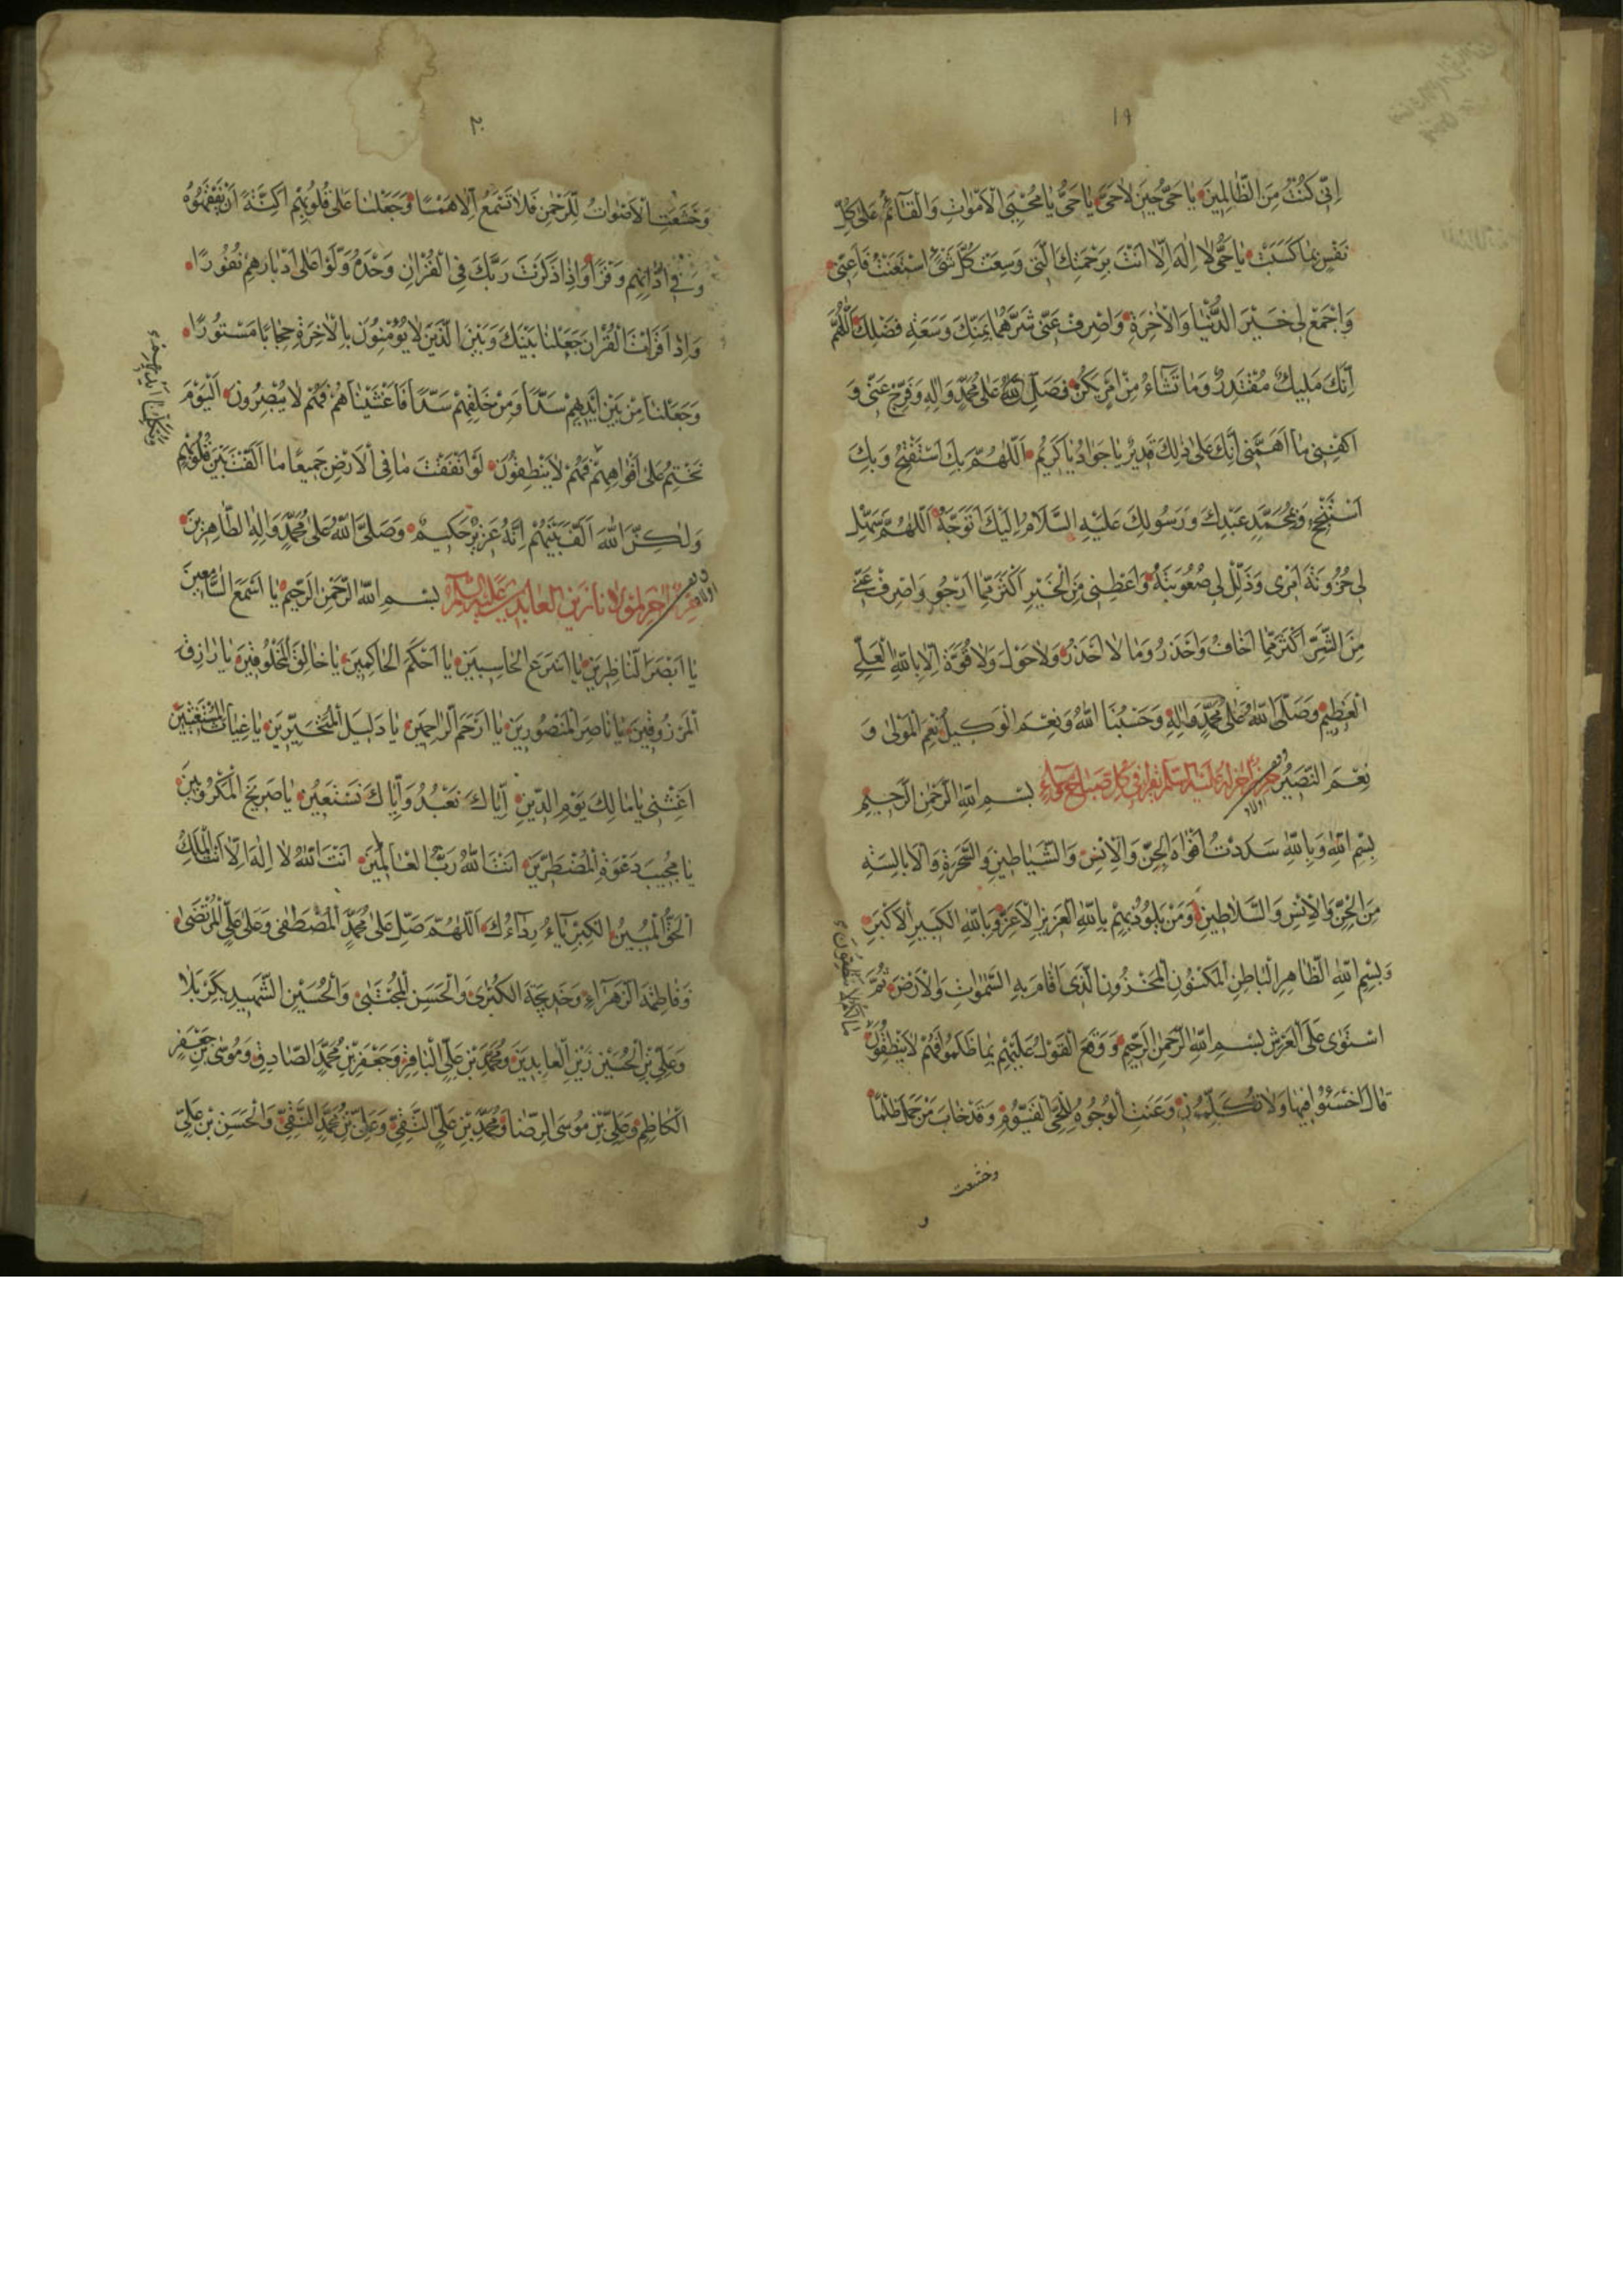 ١٩
اِنّی كُنْتُ مِنَ الظّالِمینَ یا حَیُّ حینَ لاحَیَّ یا حَیُّ یا مُحْیِیَ الْاَمْواتِ وَالْقآئِمُ عَلی كُلِّ
نَفْسٍ بِما كَسَبَتْ یا حَیُّ لا اِلهَ اِلّا اَنْتَ بِرَحْمَتِكَ الَّتی وَسِعَتْ كُلَّ شَیْءٍ اسْتَعَنْتُ فَاَعِنّی
وَاجْمَعْ لی خَیْرَ الدُّنْیا وَالْاخِرَةِ وَاصْرِفْ عَنّی شَرَّهُما بِمَنِّكَ وَسَعَةِ فَضْلِكَ اَللّهُمَّ
اِنَّكَ مَلیكٌ مُقْتَدِرٌ وَما تَشآءُ مِنْ اَمْرٍ یَكُنْ فَصَلِّ اللّهُمَّ عَلی مُحَمَّدٍ وَالِهِ وَفَرِّجْ عَنّی وَ
اكْفِنی ما اَهَمَّنی اِنَّكَ عَلی ذلِكَ قَدیرٌ یا جَوادُ یا كَریمُ اَللّهُمَّ بِكَ اَسْتَفْتِحُ وَبِكَ
اَسْتَنْجِحُ وَبِمُحَمَّدٍ عَبْدِكَ وَرَسُولِكَ عَلَیْهِ السَّلامُ اِلَیْكَ اَتَوَجَّهُ اَللّهُمَّ سَهِّلْ
لی حُزُونَةَ اَمْری وَذَلِّلْ لی صُعُوبَتَهُ وَاَعْطِنی مِنَ الْخَیْرِ اَكْثَرَ مِمّا اَرْجُو وَاصْرِفْ عَنّی
مِنَ الشَّرِّ اَكْثَرَ مِمّا اَخافُ وَاَحْذَرُ وَما لا اَحْذَرُ وَلا حَوْلَ وَلا قُوَّةَ اِلّا بِاللّهِ الْعَلِیِّ
الْعَظیمِ وَصَلَّی اللّهُ عَلی مُحَمَّدٍ وَالِهِ وَحَسْبُنَا اللّهُ وَنِعْمَ الْوَكیلُ نِعْمَ الْمَوْلی وَ
نِعْمَ النَّصیرُ حرز اخر له علیه السلم یقرا فی كل صباح ومساء بِسْمِ اللّهِ الرَّحْمنِ الرَّحیمِ
بِسْمِ اللّهِ وَبِاللّهِ سَدَدْتُ اَفْواهَ الْجِنِّ وَالْاِنْسِ وَالشَّیاطینِ وَالسَّحَرَةِ وَالْاَبالِسَةِ
مِنَ الْجِنِّ وَالْاِنْسِ وَالسَّلاطینِ وَمَنْ یَلُوذُ بِهِمْ بِاللّهِ الْعَزیزِ الْاَعَزِّ وَبِاللّهِ الْكَبیرِ الْاَكْبَرِ
وَبِسْمِ اللّهِ الظّاهِرِ الْباطِنِ الْمَكْنُونِ الْمَخْزُونِ الَّذی اَقامَ بِهِ السَّمواتِ وَالْاَرْضَ ثُمَّ
اسْتَوی عَلَی الْعَرْشِ بِسْمِ اللّهِ الرَّحْمنِ الرَّحیمِ وَ وَقَعَ الْقَوْلُ عَلَیْهِمْ بِما ظَلَمُوا فَهُمْ لایَنْطِقُونَ
قالَ اخْسَئُوا فیها وَلاتُكَلِّمُونِ وَعَنَتِ الْوُجُوهُ لِلْحَیِّ الْقَیُّومِ وَقَدْ خابَ مَنْ حَمَلَ ظُلْمًا
وخشعت
٢٠
وَخَشَعَتِ الْاَصْواتُ لِلرَّحْمنِ فَلاتَسْمَعُ اِلّا هَمْسًا وَجَعَلْنا عَلی قُلُوبِهِمْ اَكِنَّةً اَنْ یَفْقَهُوهُ
وَفی اذانِهِمْ وَقْرًا وَاِذا ذَكَرْتَ رَبَّكَ فِی الْقُرْانِ وَحْدَهُ وَلَّوْا عَلی اَدْبارِهِمْ نُفُورًا
وَاِذا قَرَاْتَ الْقُرْانَ جَعَلْنا بَیْنَكَ وَبَیْنَ الَّذینَ لایُؤْمِنُونَ بِالْاخِرَةِ حِجابًا مَسْتُورًا
وَجَعَلْنا مِنْ بَیْنِ اَیْدیهِمْ سَدًّا وَمِنْ خَلْفِهِمْ سَدًّا فَاَغْشَیْناهُمْ فَهُمْ لایُبْصِرُونَ اَلْیَوْمَ
نَخْتِمُ عَلی اَفْواهِهِمْ فَهُمْ لایَنْطِقُونَ لَوْ اَنْفَقْتَ ما فِی الْاَرْضِ جَمیعًا ما اَلَّفْتَ بَیْنَ قُلُوبِهِمْ
وَلكِنَّ اللّهَ اَلَّفَ بَیْنَهُمْ اِنَّهُ عَزیزٌ حَكیمٌ وَصَلَّی اللّهُ عَلی مُحَمَّدٍ وَالِهِ الطّاهِرینَ
حرز اخر لمولانا زین العابدین علیه السلام بِسْمِ اللّهِ الرَّحْمنِ الرَّحیمِ یا اَسْمَعَ السّامِعینَ
یا اَبْصَرَ النّاظِرینَ یا اَسْرَعَ الْحاسِبینَ یا اَحْكَمَ الْحاكِمینَ یا خالِقَ الْمَخْلُوقینَ یا رازِقَ
الْمَرْزُوقینَ یا ناصِرَ الْمَنْصُورینَ یا اَرْحَمَ الرّاحِمینَ یا دَلیلَ الْمُتَحَیِّرینَ یا غِیاثَ الْمُسْتَغیثینَ
اَغِثْنی یا مالِكَ یَوْمِ الدّینِ اِیّاكَ نَعْبُدُ وَاِیّاكَ نَسْتَعینُ یا صَریخَ الْمَكْرُوبینَ
یا مُجیبَ دَعْوَةِ الْمُضْطَرّینَ اَنْتَ اللّهُ رَبُّ الْعالَمینَ اَنْتَ اللّهُ لا اِلهَ اِلّا اَنْتَ الْمَلِكُ
الْحَقُّ الْمُبینُ الْكِبْرِیآءُ رِدآءُكَ اَللّهُمَّ صَلِّ عَلی مُحَمَّدٍ الْمُصْطَفی وَعَلی عَلِیٍّ الْمُرْتَضی
وَفاطِمَةَ الزَّهْرآءِ وَخَدیجَةَ الْكُبْری وَالْحَسَنِ الْمُجْتَبی وَالْحُسَیْنِ الشَّهیدِ بِكَرْبَلا
وَعَلِیِّ بْنِ الْحُسَیْنِ زَیْنِ الْعابِدینَ وَمُحَمَّدِ بْنِ عَلِیٍّ الْباقِرِ وَجَعْفَرِ بْنِ مُحَمَّدٍ الصّادِقِ وَمُوسَی بْنِ جَعْفَرٍ
الْكاظِمِ وَعَلِیِّ بْنِ مُوسَی الرِّضا وَمُحَمَّدِ بْنِ عَلِیٍّ التَّقِیِّ وَعَلِیِّ بْنِ مُحَمَّدٍ النَّقِیِّ وَالْحَسَنِ بْنِ عَلِیٍّ